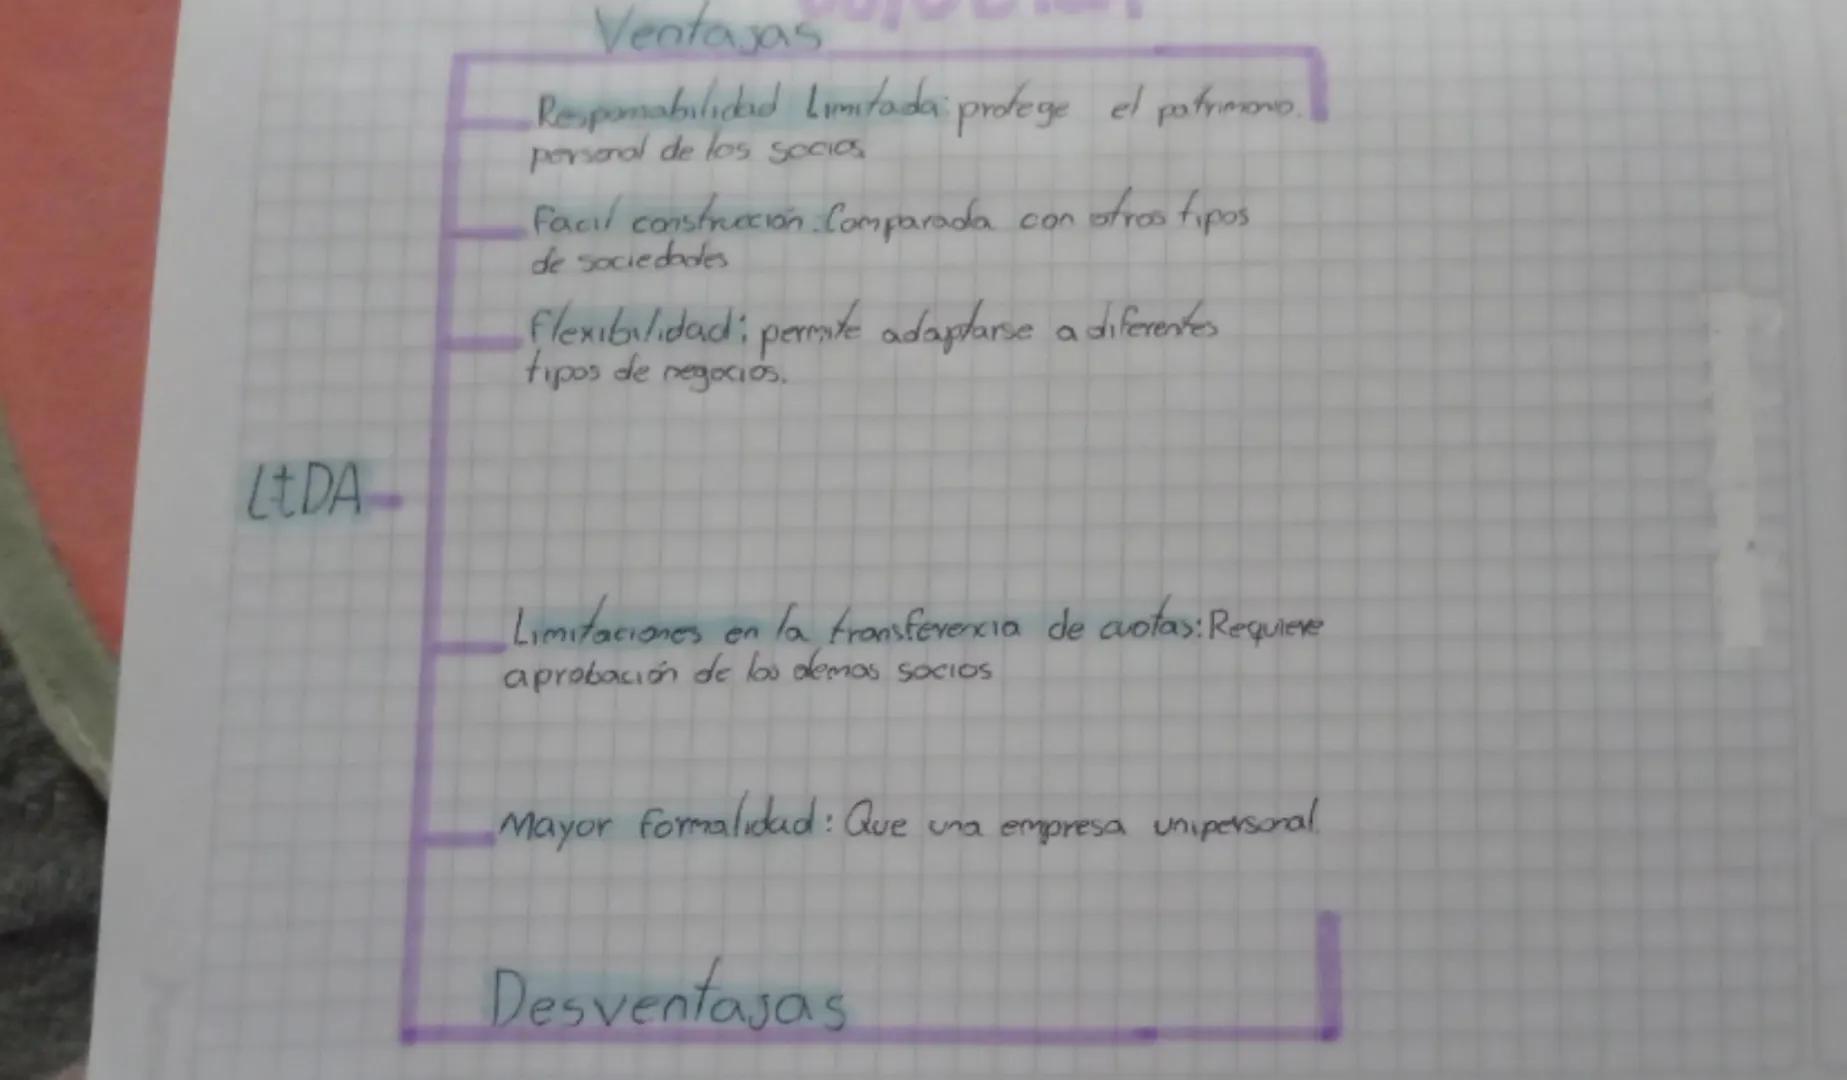 Ventajas
Responsabilidad Limitada: protege el patrimonio.
personal de los socios
Facil construcción. Comparada con otros tipos
de sociedades
Flexibilidad: permite adaptarse a diferentes
tipos de negocios.
LtDA
Limitaciones en la transferencia de cuotas: Requiere
aprobación de los demas socios
Mayor formalidad: Que una empresa unipersonal
Desventajas